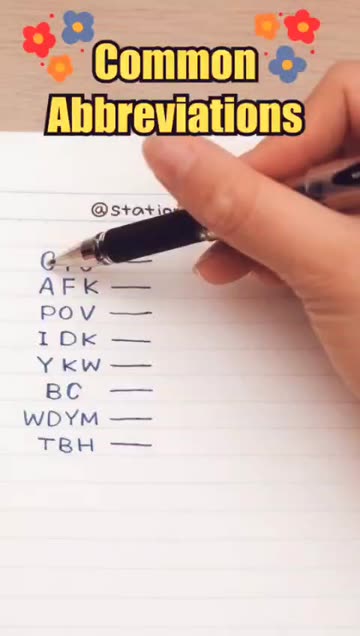 Common
Abbreviations
AFK —
POV —
IDK —
YKW —
BC —
WDYM —
TBH —